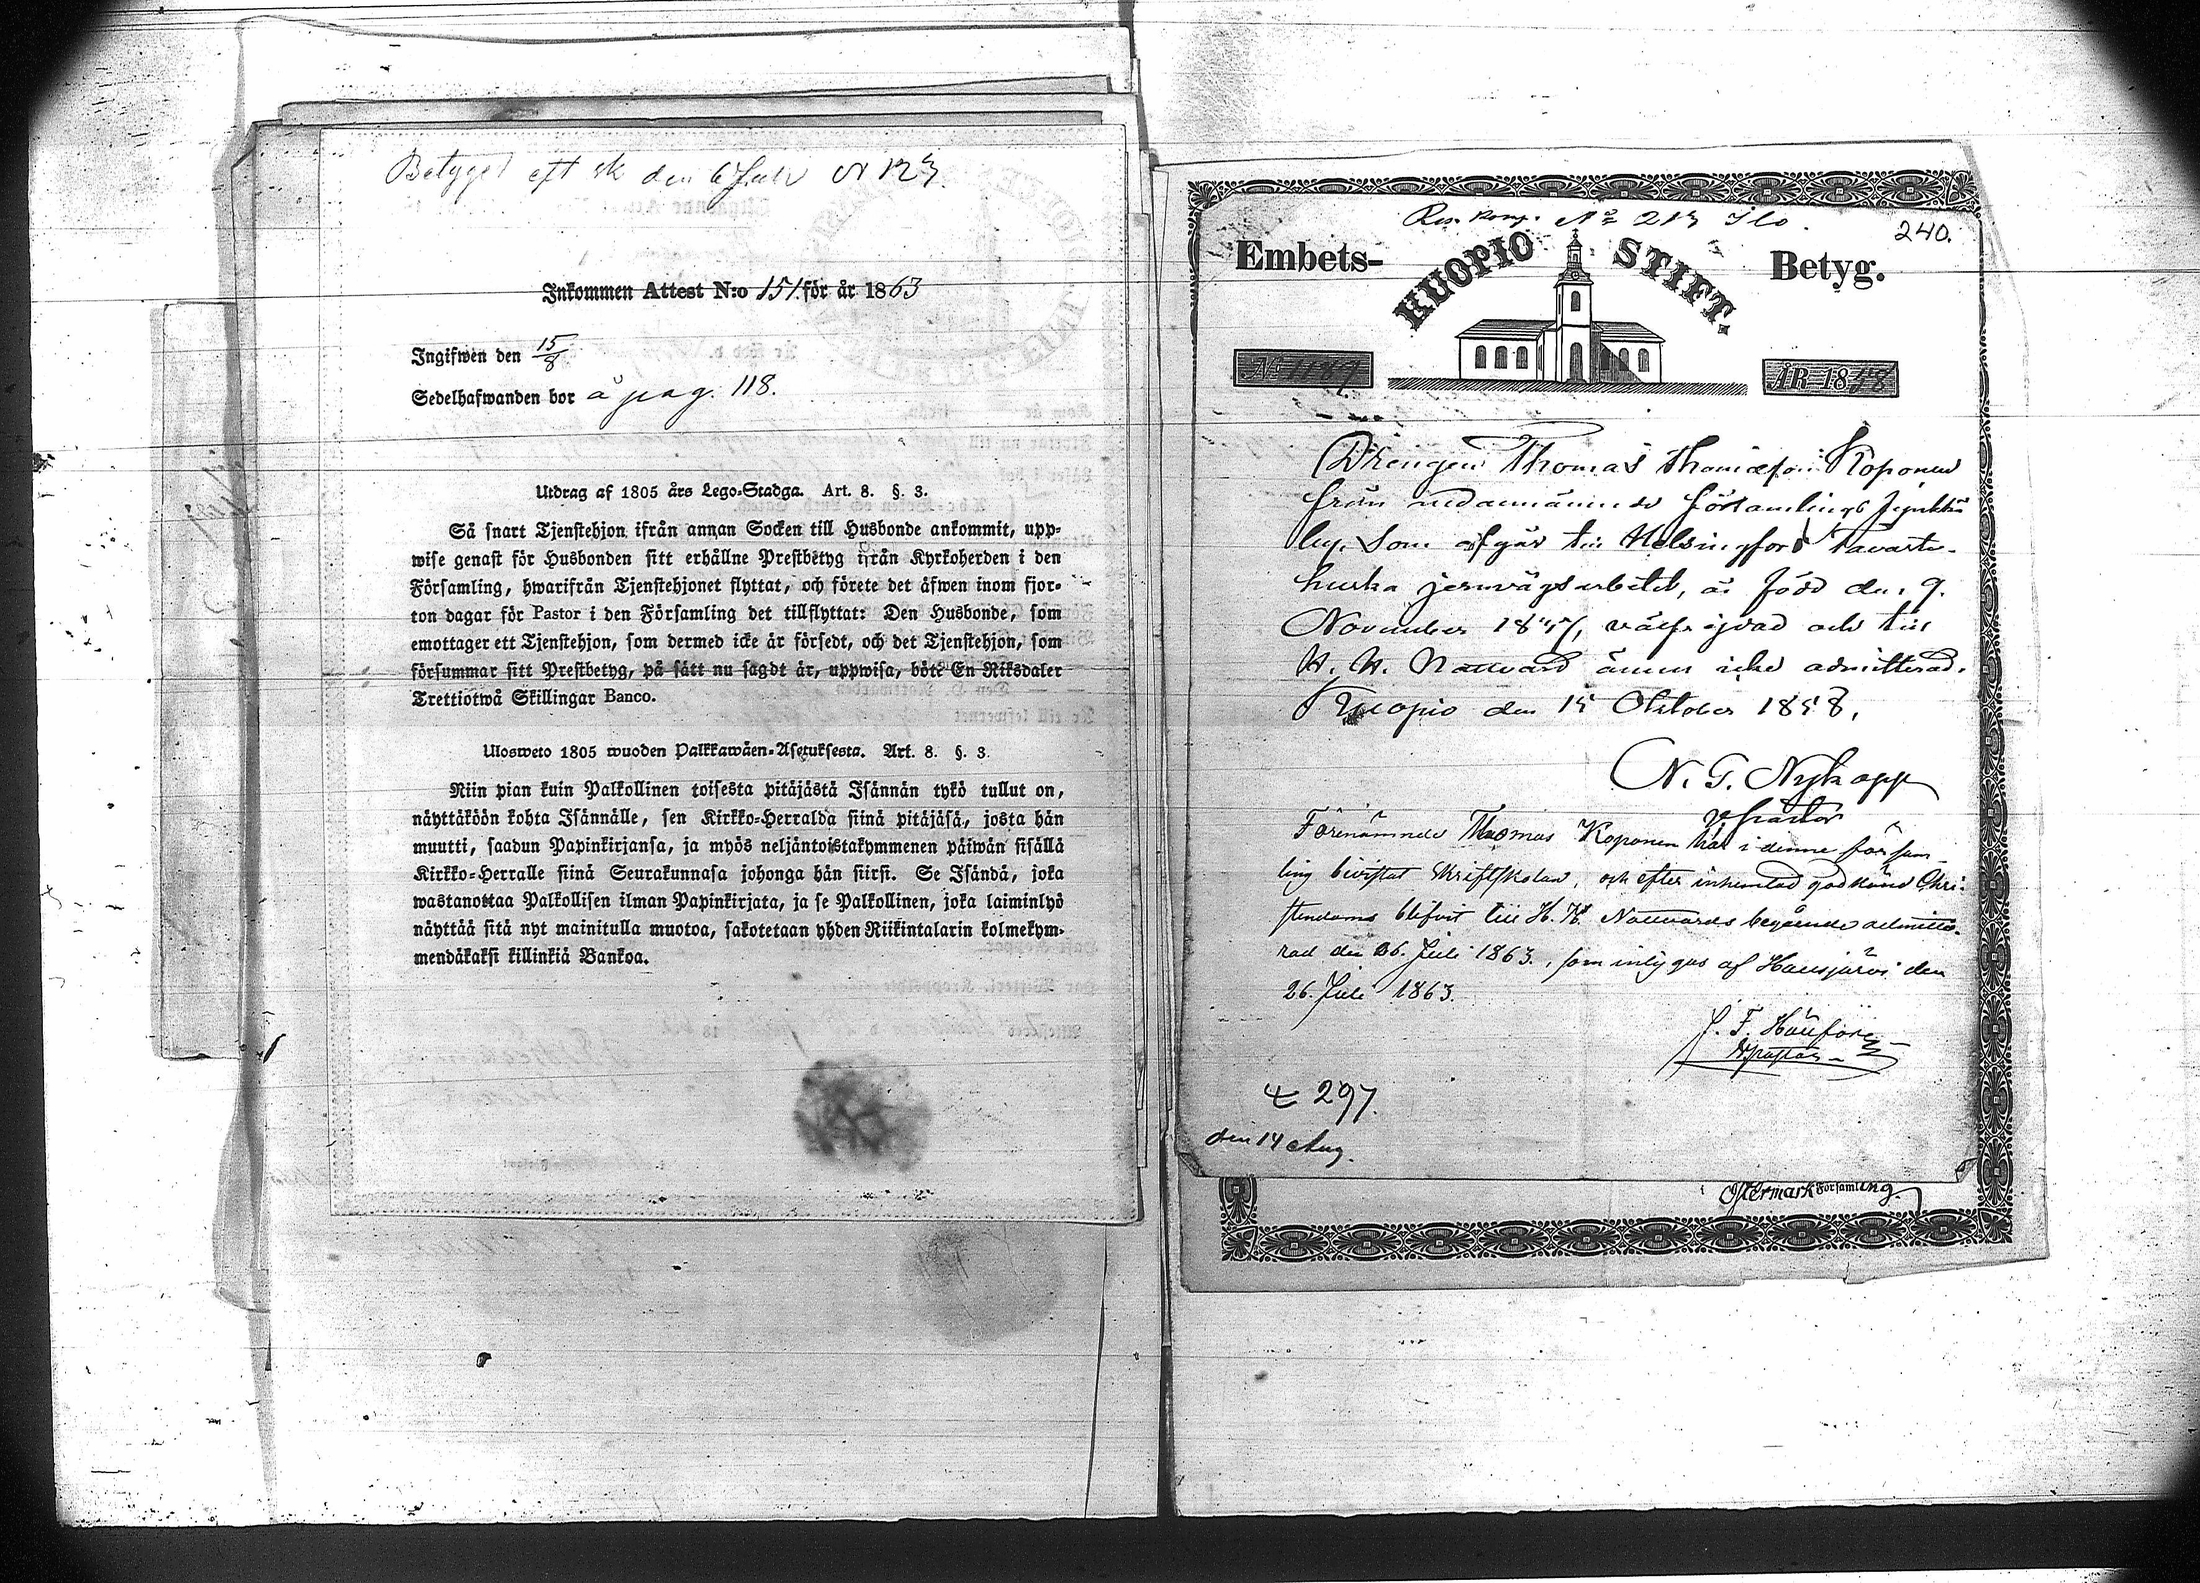 Betyget eft sk den 6 Juli N 123.
Inkommen Attest N:o 151 för år 1863
Ingifwen den 15/8
Sedelhafwanden bor å pag. 118.
Utdrag af 1805 års Lego-Stadga. Art. 8. §. 3.
Så snart Tjenstehjon ifrån annan Socken till Husbonde ankommit, upp-
wise genast för Husbonden sitt erhållne Prestbetyg ifrån Kyrkoherden i den
Församling, hwarifrån Tjenstehjonet flyttat, och förete det äfwen inom fjor-
ton dagar för Pastor i den Församling det tillflyttat: Den Husbonde, som
emottager ett Tjenstehjon, som dermed icke är försedt, och det Tjenstehjon, som
försummar sitt Prestbetyg, på sätt nu sagdt är, uppwisa, böte En Riksdaler
Trettiotwå Skillingar Banco.
Ulosweto 1805 wuoden Palkkawäen-Asetuksesta. Art. 8. §. 3.
Niin pian kuin Palkollinen toisesta pitäjästä Isännän tykö tullut on,
näyttäköön kohta Isännälle, sen Kirkko-Herralda siinä pitäjäsä, josta hän
muutti, saadun Papinkirjansa, ja myös neljäntoistakymmenen päiwän sisällä
Kirkko-Herralle siinä Seurakunnasa johonga hän siirsi. Se Isändä, joka
wastanottaa Palkollisen ilman Papinkirjata, ja se Palkollinen, joka laiminlyö
näyttää sitä nyt mainitulla muotoa, sakotetaan yhden Riikintalarin kolmekym-
mendäkaksi killinkiä Bankoa.
N:o 213
240.
Embets-
KUOPIO STIFT.
Betyg.
ÅR 1858
Drengen Thomas Thomasson Koponen
från nedannämnde församlings Jynkkä
by, som afgår till Helsingfors Tavaste-
huska jernvägsarbetet, är född den 9.
November 184, välfrejdad och till
H. H. Nattvard ännu icke admitterad.
Kuopio den 15 Oktober 1858.
N. G. Nykopp
v Pastor
Förenämnde Thomas Koponen har i denne försam-
ling bivistat skriftskolan, och efter inhemtad godkänd Chri-
stendoms blifvit till H. H. Nattvards begående admitte-
rad den 26. Juli 1863, som intygas af Hausjärvi den
26. Juli 1863.
297.
den 14 Aug.
Östermark Församling.